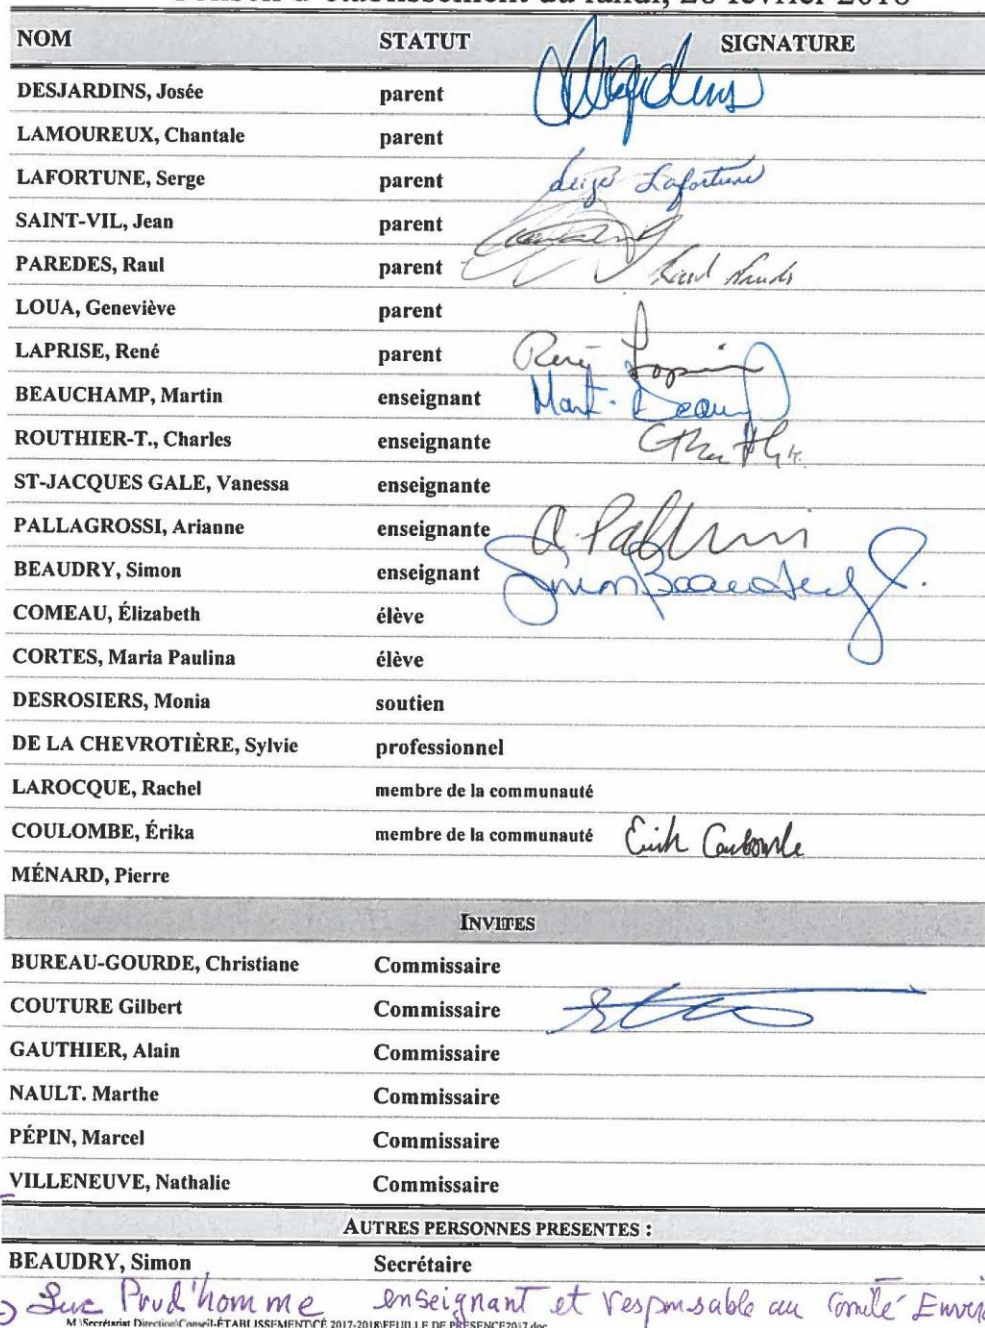 Conseil d'établissement du lundi, 26 février 2018
NOM STATUT SIGNATURE
DESJARDINS, Josée parent
LAMOUREUX, Chantale parent
LAFORTUNE, Serge parent Serge Lafortune
SAINT-VIL, Jean parent
PAREDES, Raul parent
LOUA, Geneviève parent
LAPRISE, René parent René
BEAUCHAMP, Martin enseignant
ROUTHIER-T., Charles enseignante
ST-JACQUES GALE, Vanessa enseignante
PALLAGROSSI, Arianne enseignante
BEAUDRY, Simon enseignant Simon Beaudry
COMEAU, Élizabeth élève
CORTES, Maria Paulina élève
DESROSIERS, Monia soutien
DE LA CHEVROTIÈRE, Sylvie professionnel
LAROCQUE, Rachel membre de la communauté
COULOMBE, Érika membre de la communauté Erik Coulombe
MÉNARD, Pierre
INVITES
BUREAU-GOURDE, Christiane Commissaire
COUTURE Gilbert Commissaire
GAUTHIER, Alain Commissaire
NAULT. Marthe Commissaire
PÉPIN, Marcel Commissaire
VILLENEUVE, Nathalie Commissaire
AUTRES PERSONNES PRESENTES :
BEAUDRY, Simon Secrétaire
Luc Prud'homme enseignant et responsable au Comité Enviro
M:\Secrétariat Direction\Conseil-ÉTABLISSEMENT\CÉ 2017-2018\FEUILLE DE PRÉSENCE2017.doc